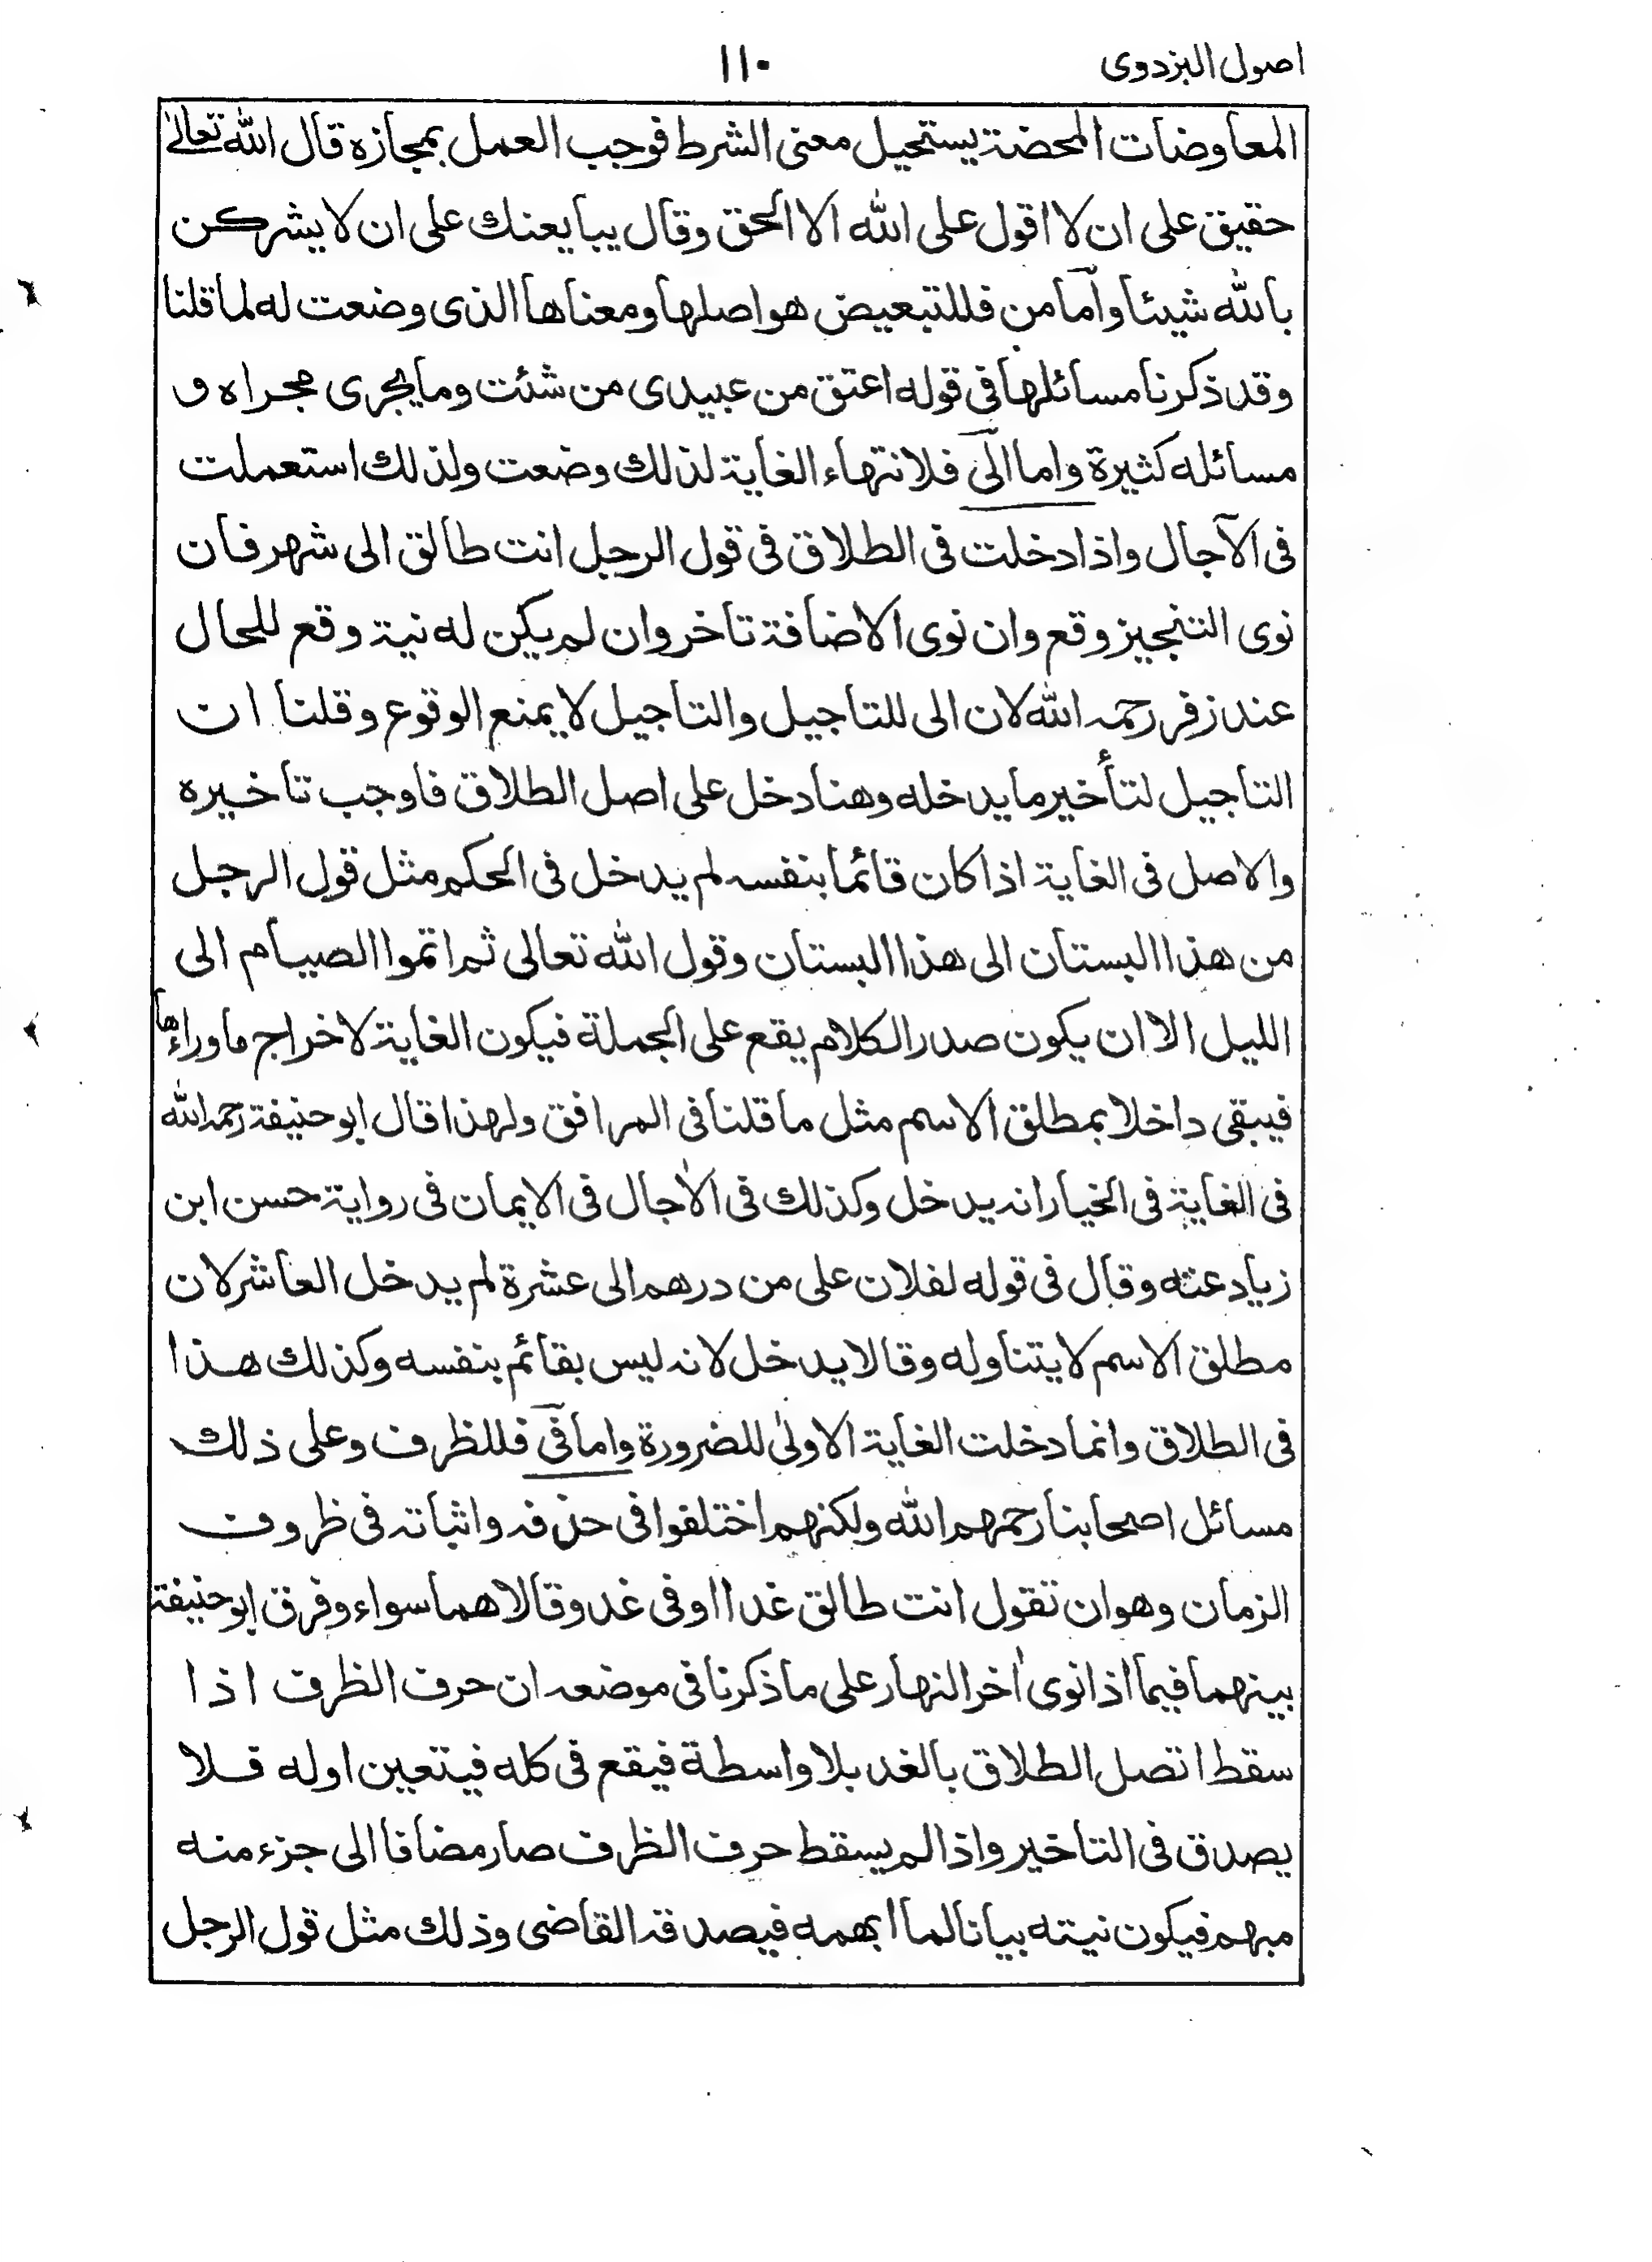 اصول البزدوى
١١٠
المعاوضات المحضة يستحيل معنى الشرط فوجب العمل بمجازه قال الله تعالىٰ
حقيق على ان لا اقول على الله الا الحق وقال يبايعنك على ان لا يشركن
بالله شيئا وامّا من فللتبعيض هو اصلها ومعناها الذى وضعت له لما قلنا
وقد ذكرنا مسائلها فى قوله اعتق من عبيدى من شئت وما يجرى مجراه و
مسائله كثيرة واما الى فلانتهاء الغاية لذلك وضعت ولذلك استعملت
فى الآجال واذا دخلت فى الطلاق فى قول الرجل انت طالق الى شهر فان
نوى التنجيز وقع وان نوى الاضافة تاخر وان لم يكن له نية وقع للحال
عند زفر رحمه الله لان الى للتاجيل والتاجيل لا يمنع الوقوع وقلنا ان
التاجيل لتأخير ما يدخله وهنا دخل على اصل الطلاق فاوجب تاخيره
والاصل فى الغاية اذا كان قائما بنفسه لم يدخل فى الحكم مثل قول الرجل
من هذا البستان الى هذا البستان وقول الله تعالى ثم اتموا الصيام الى
الليل الا ان يكون صدر الكلام يقع على الجملة فيكون الغاية لاخراج ما وراءها
فيبقى داخلا بمطلق الاسم مثل ما قلنا فى المرافق ولهذا قال ابو حنيفة رحمه الله
فى الغاية فى الخيار انه يدخل وكذلك فى الاٰجال فى الايمان فى رواية حسن ابن
زياد عنه وقال فى قوله لفلان على من درهم الى عشرة لم يدخل العاشر لان
مطلق الاسم لا يتناوله وقالا يدخل لانه ليس بقائم بنفسه وكذلك هذا
فى الطلاق وانما دخلت الغاية الاولىٰ للضرورة واما فى فللظرف وعلى ذلك
مسائل اصحابنا رحمهم الله ولكنهم اختلفوا فى حذفه واثباته فى ظروف
الزمان وهو ان تقول انت طالق غدا او فى غد وقالا هما سواء وفرق ابو حنيفة
بينهما فيما اذا نوى اٰخر النهار على ما ذكرنا فى موضعه ان حرف الظرف اذا
سقط اتصل الطلاق بالغد بلا واسطة فيقع فى كله فيتعين اوله فلا
يصدق فى التاخير واذا لم يسقط حرف الظرف صار مضافا الى جزء منه
مبهم فيكون نيته بيانا لما ابهمه فيصدقه القاضى وذلك مثل قول الرجل